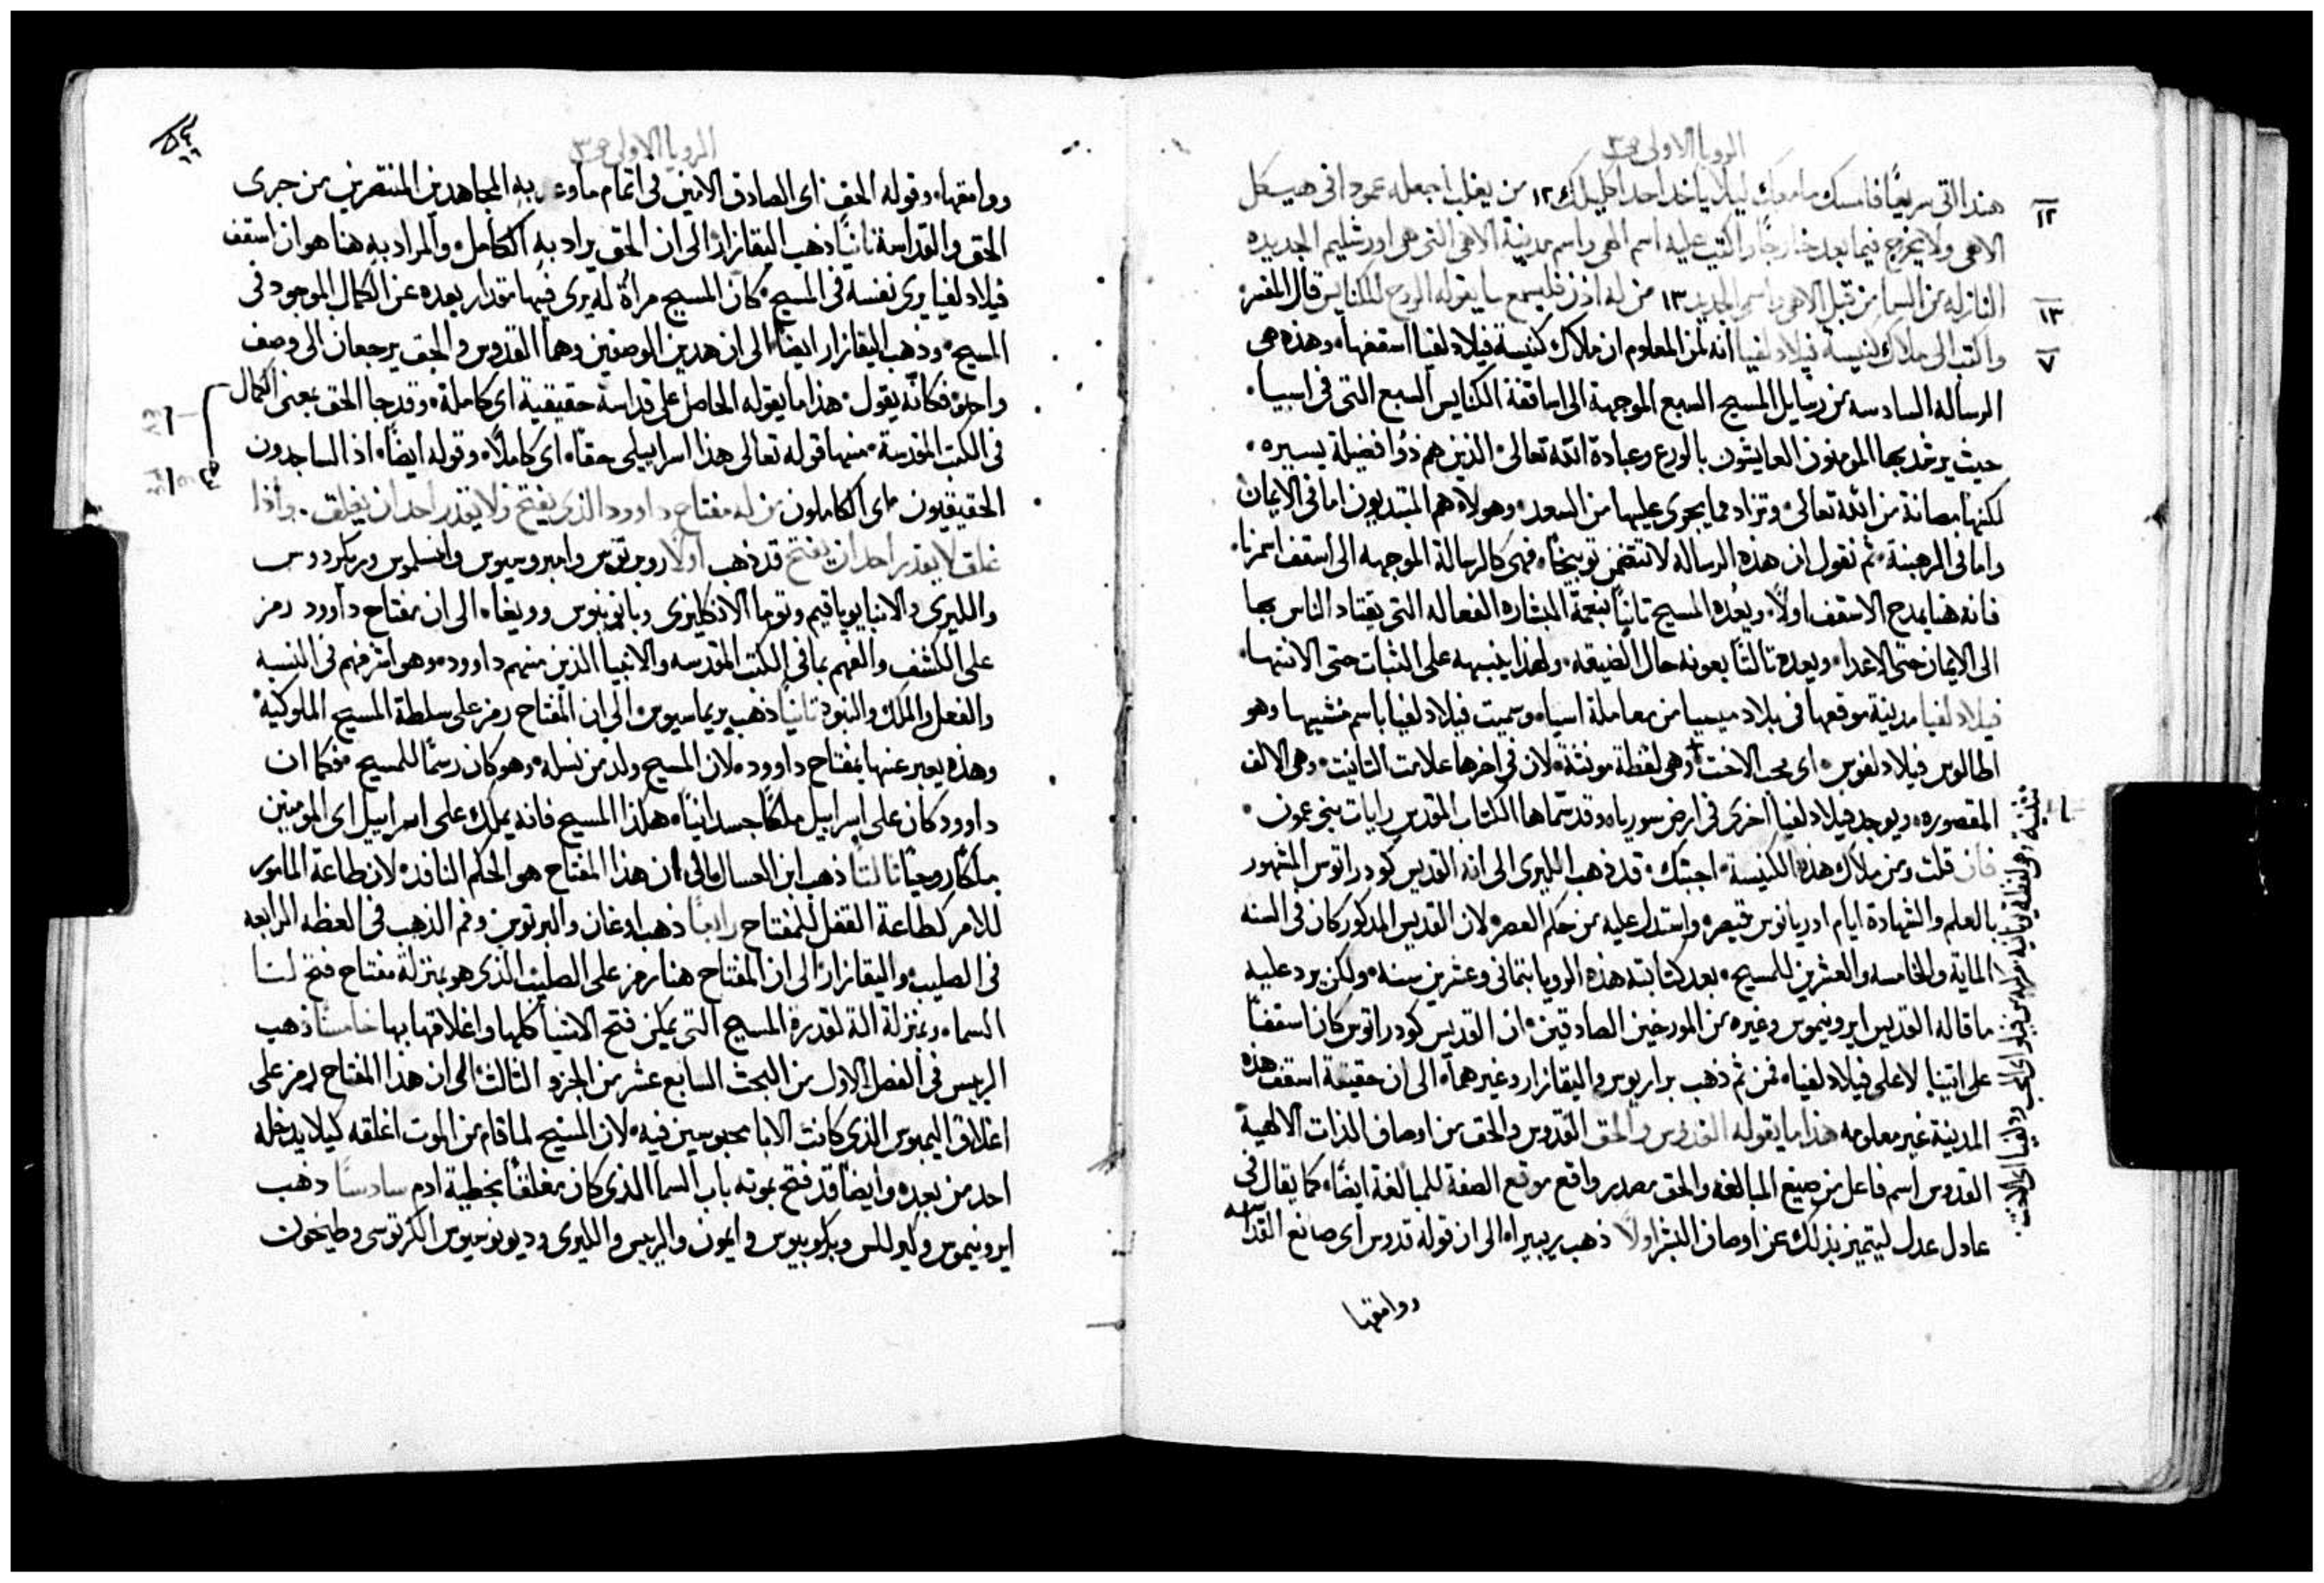 الرويا الاولى ص٣
هنذا اتى سريعًا فامسك ما معك ليلا ياخد احدا كليلك ١٢ من يغلب اجعله عمودا في هيكل
الاهي ولا يخرج فيما بعد خارجًا واكتب عليه اسم الاهي واسم مدينة الاهي التي هي اورشليم الجديده
النازله من السما من قبل الاهي واسمي الجديد ١٣ من له اذن فليسمع ما يقوله الروح للكنايس قال المفسر
واكتب الى ملاك كنيسة فيلادلفيا انه لمن المعلوم ان ملاك كنيسة فيلادلفيا اسقفها، وهذه هي
الرساله السادسه من رسايل المسيح السبع الموجهة الى اساقفة الكنايس السبع التي في اسيا.
حيث يرشد بها المومنون العايشون بالورع وعبادة الله تعالى الذين هم ذوا فضيلة يسيره.
لكنها مصانة من الله تعالى وتزاد مما يجرى عليها من السعد وهولاء هم المبتديون اما في الايمان
واما في الرهبنة ثم نقول ان هذه الرساله لا تتضمن توبيخًا، فهي كالرسالة الموجهه الى اسقف اسمرنا.
فانه هنا يمدح الاسقف اولاً، ويعده المسيح تانيًا بنعمة البشاره الفعاله التي يقتاد الناس بها
الى الايمان حتى الاعدا، ويعده تالتًا بعونه حال الضيقه ولهذا ينبهه على الثبات حتى الانتها.
فيلادلفيا مدينة موقعها في بلاد ميسيا من معاملة اسيا، وسميت فيلادلفيا باسم منشيها وهو
اطالوس فيلادلفوس، اي محب الاخت وهي لفظة مونثة، لان في اخرها علامت التانيث، وهي الالف
المقصوره، ويوجد فيلادلفيا اخرى في ارض سوريا، وقد سماها الكتاب المقدس رابات بني عمون.
فان قلت ومن ملاك هذه الكنيسة، اجبتك قد ذهب الليرى الى انه القديس كودراتوس المشهور
بالعلم والشهادة ايام ادريانوس قيصر، واستدل عليه من حكم العصر، لان القديس المذكور كان في السنه
الماية والخامسه والعشرين للمسيح، بعد كتابته هذه الرويا بتماني وعشرين سنه، ولكن يرد عليه
ما قاله القديس ايرونيموس وغيره من المورخين الصادقين، ان القديس كودراتوس كان اسقفًا
على اتينا لا على فيلادلفيا، فمن ثم ذهب براريوس واليقازار وغيرهما، الى ان حقيقة اسقف هذه
المدينة غير معلومه هذا ما يقوله القدوس والحق القدوس والحق من اوصاف الذات الالهية
القدوس اسم فاعل من صيغ المبالغه والحق مصدر واقع موقع الصفة للمبالغة ايضًا، كما يقال في
عادل عدل ليتميز بذلك عن اوصاف البشر اولًا ذهب ريبيرا، الى ان قوله قدوس اي صانع القداسه
ودوامتها
١٢
١٣
٧
الرويا الاولى ص٣
ودوامتها، وقوله الحق اي الصادق الامين في اتمام ما وعد به المجاهدين المنتصرين من جرى
الحق والقداسة تانيًا ذهب اليقازار الى ان الحق يراد به الكامل، والمراد به هنا هو ان اسقف
فيلادلفيا يرى نفسه في المسيح، كان المسيح مراة له يرى فيها مقدار بعده عن الكمال الموجود في
المسيح، وذهب اليقازار ايضًا الى ان هذين الوصفين وهما القدوس والحق يرجعان الى وصف
واحد، فكانه يقول، هذا ما يقوله الحاصل على قداسة حقيقية اي كاملة، وقد جا الحق بمعنى الكمال
في الكتب المقدسة، منها قوله تعالى هذا اسراييلي حقًا، اي كاملًا، وقوله ايضًا، اذ الساجدون
الحقيقيون، اي الكاملون من له مفتاح داوود الذي يفتح ولا يقدر احد ان يغلق. واذا
غلق لا يقدر احد ان يفتح قد ذهب اولًا روبرتوس وامبروسيوس وانسلموس وريكردوس
والليرى والانبا يوياقيم وتوما الانكليزى وبانونيوس وويغا، الى ان مفتاح داوود رمز
على الكشف والفهم بما في الكتب المقدسه والانبيا الذين منهم داوود، وهو اشرفهم في النسبه
والفعل والملك والنبوه تانيًا ذهب بريماسيوس الى ان المفتاح رمز على سلطة المسيح الملوكية
وهذه يعبر عنها بمفتاح داوود، لان المسيح ولد من نسله، وهو كان رسمًا للمسيح، فكما ان
داوود كان على اسراييل ملكًا جسدانيًا، هكذا المسيح فانه يملك على اسراييل اي المومنين
ملكًا روحيًا تالتًا ذهب ابن العسال الى ان هذا المفتاح هو الحكم النافذ، لان طاعة المامور
للامر كطاعة القفل للمفتاح رابعًا ذهب اوغان والبرتوس وفم الذهب في العظه الرابعه
في الصليب واليقازار الى ان المفتاح هنا رمز على الصليب الذي هو بمنزلة مفتاح فتح لنا
السما، وبمنزلة الة لقدرة المسيح التي يمكن فتح الاشيا كلها واغلاقها بها خامسًا ذهب
الرييس في الفصل الاول من البحث السابع عشر من الجزو الثالث الى ان هذا المفتاح رمز على
اغلاق اليمبوس الذي كانت الابا محبوسين فيه، لان المسيح لما قام من الموت اغلقه كيلا يدخله
احد من بعده، وايضًا قد فتح بموته باب السما الذي كان مغلقًا بخطية ادم سادسًا ذهب
ايرونيموس وكيرللس وايمون والرييس والليرى وديونوسيوس الكرتوسي